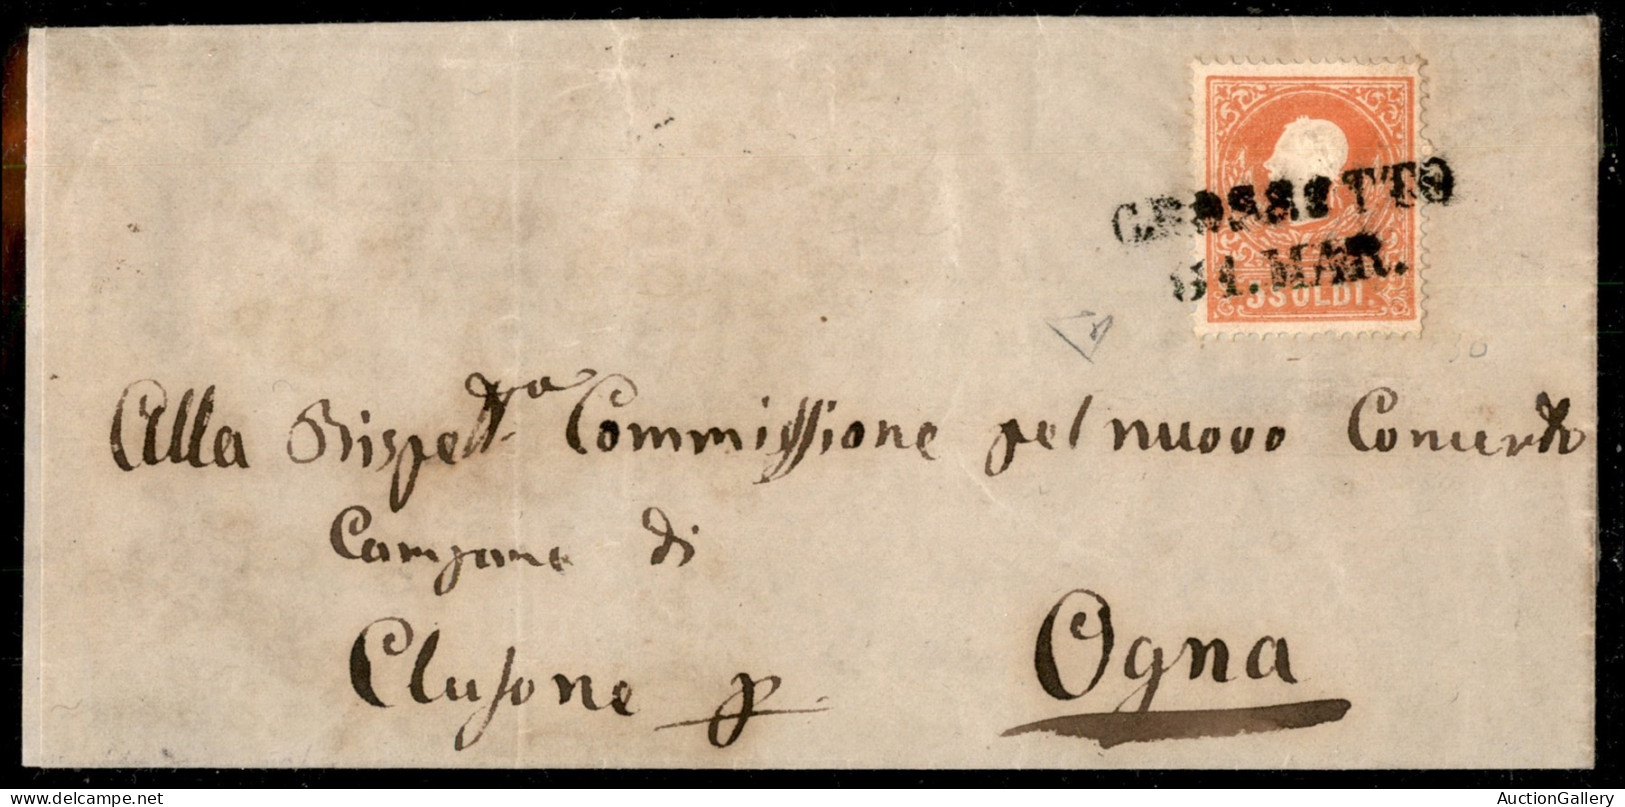 GROSSOTTO
31. MAR.
5 SOLDI.
Alla Rispett.a Commissione pel nuovo Concerto
Campane di
Clusone p. Ogna
AuctionGallery